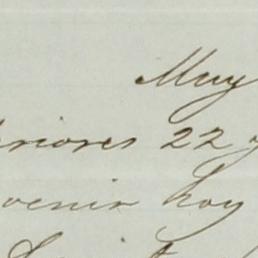 Muy
riores 22 y
venir hoy